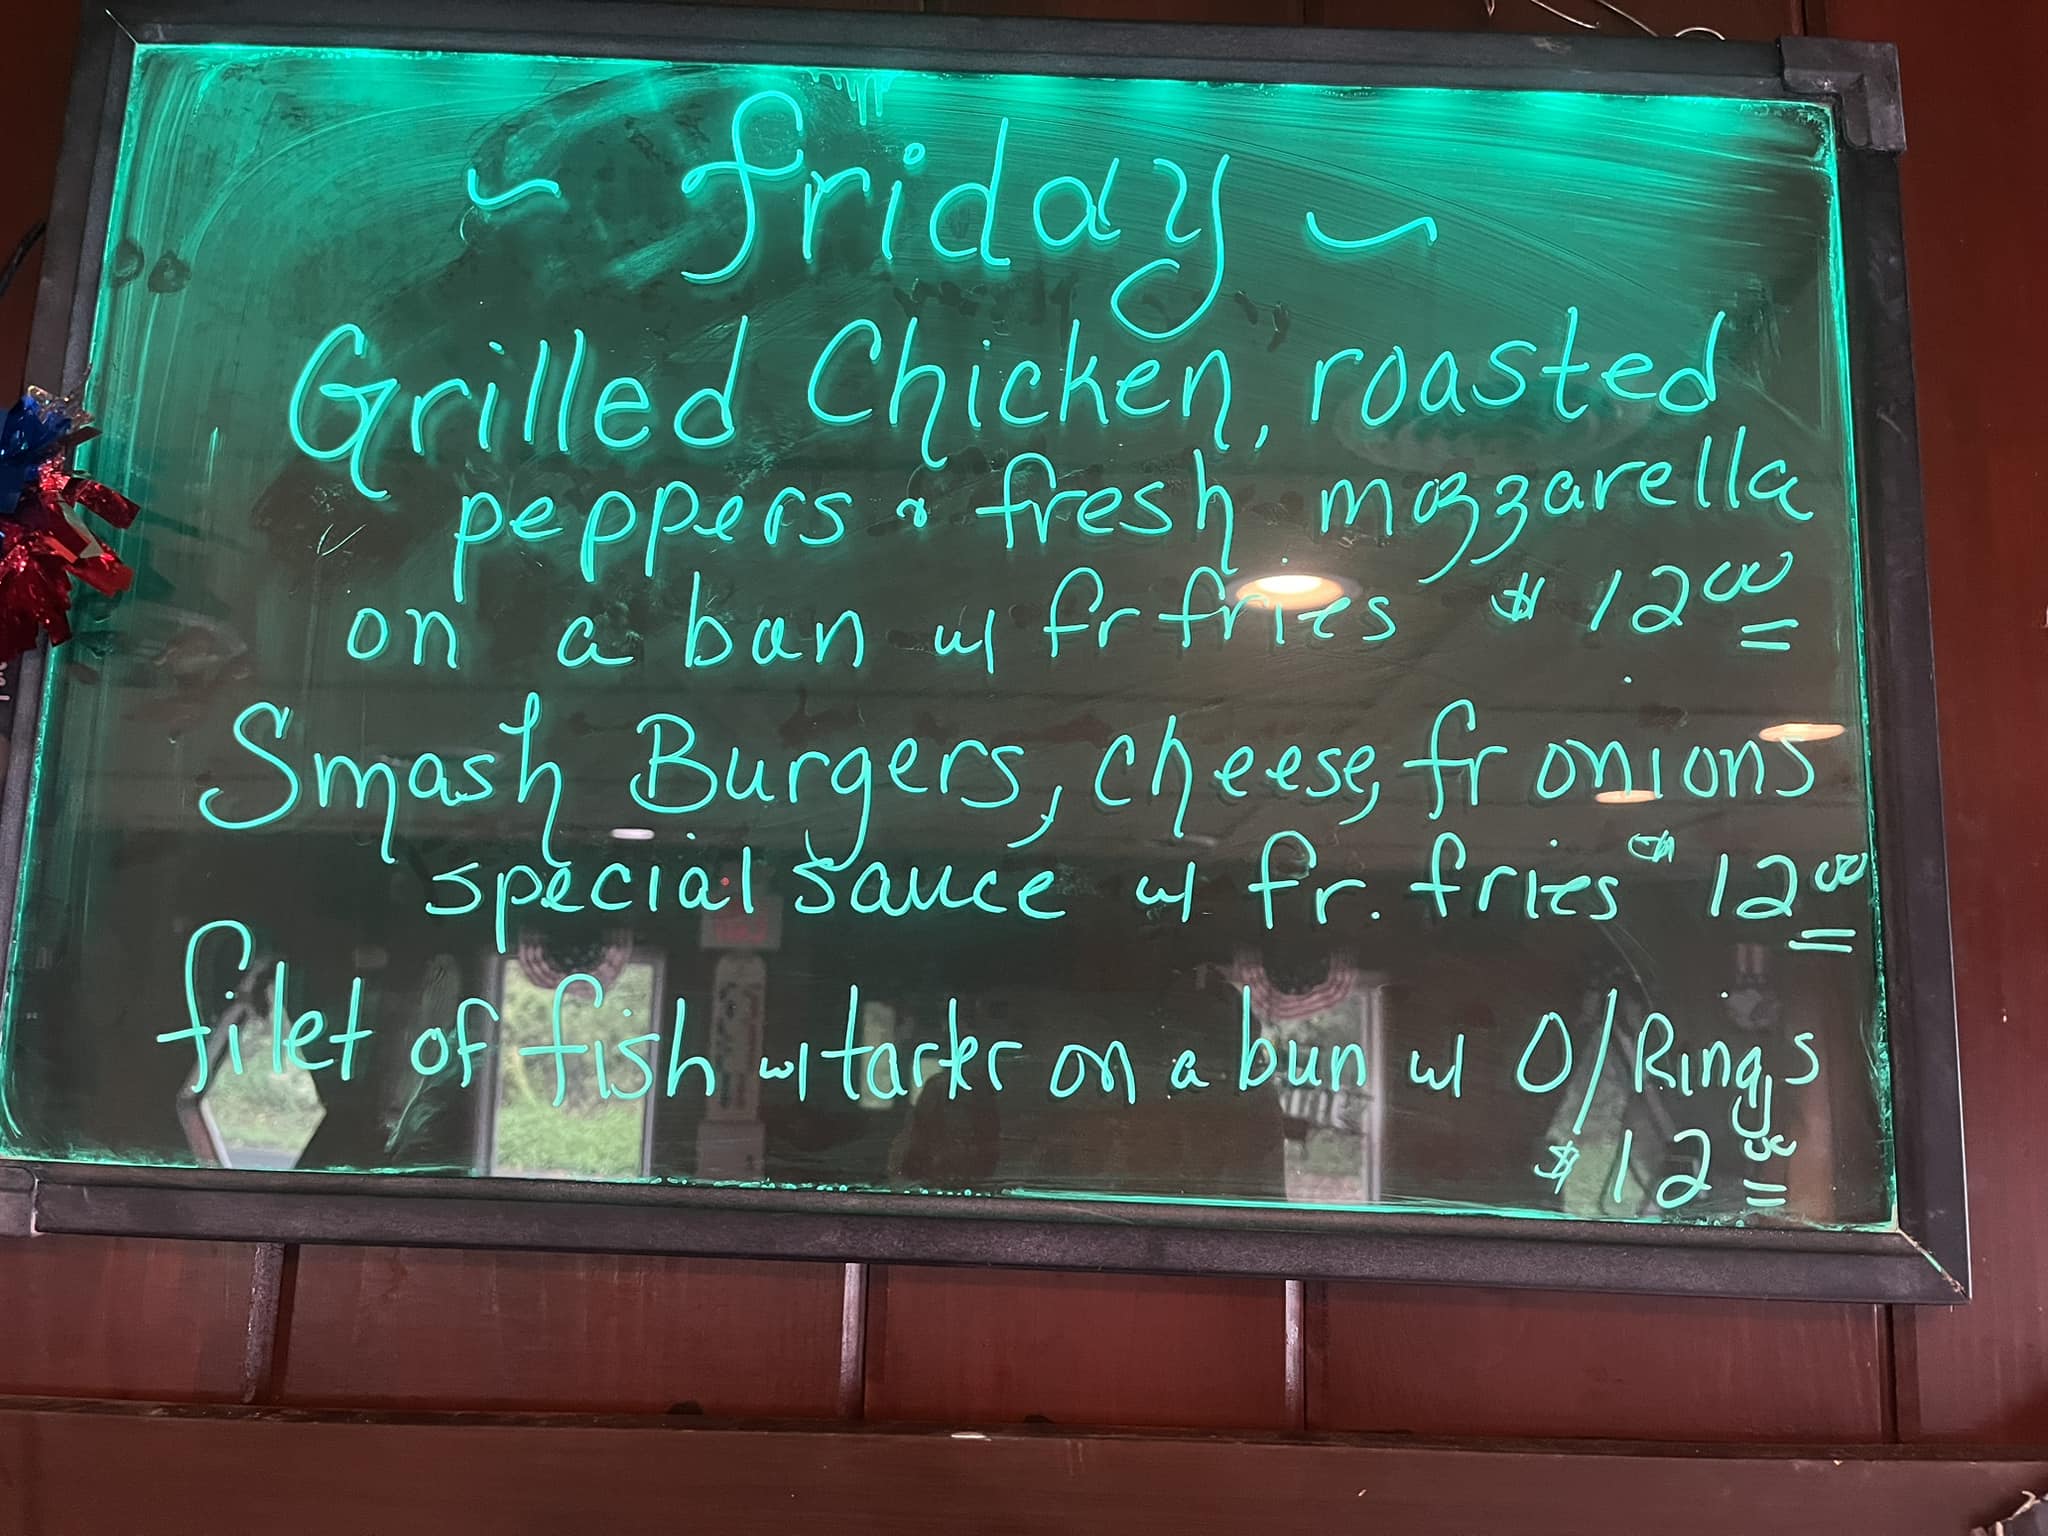 ~ friday ~
Grilled Chicken, roasted
peppers & fresh mozzarella
on a bun w/ fr fries $12.00
Smash Burgers, cheese, fr onions
special sauce w/ fr. fries $12.00
filet of fish w/ tarter on a bun w/ O/Rings
$12.00